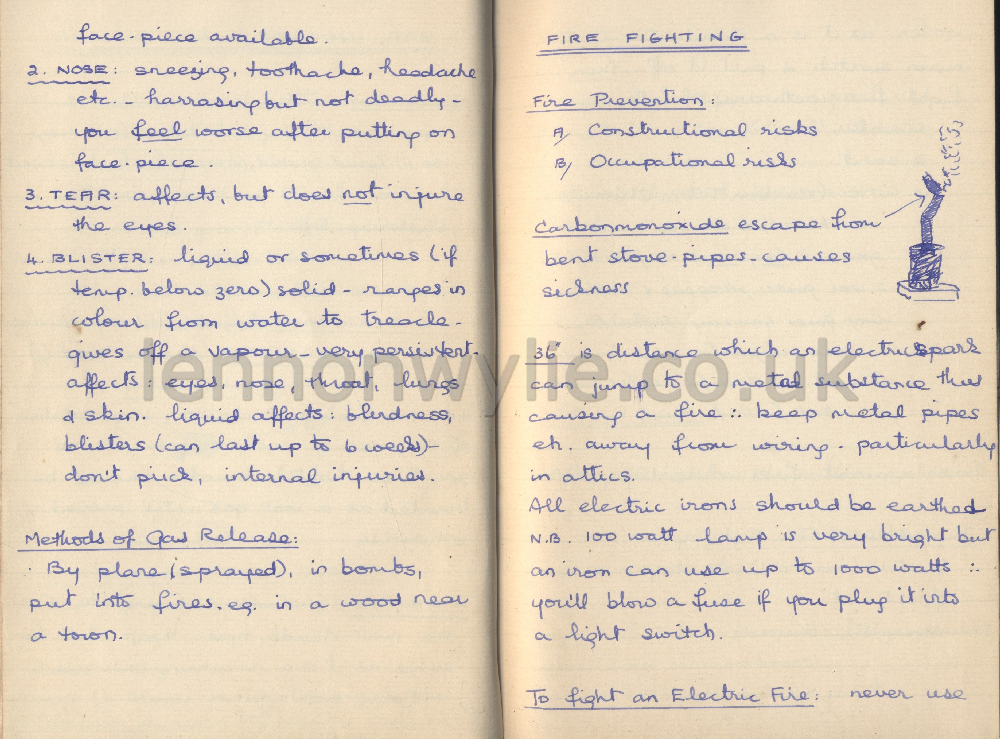 face-piece available.
2. NOSE: sneezing, toothache, headache
etc. - harrasing but not deadly -
you feel worse after putting on
face-piece
3. TEAR: affects, but does not injure
the eyes.
4. BLISTER: liquid or sometimes (if
temp. below zero) solid - ranges in
colour from water to treacle -
gives off a vapour - very persistent -
affects: eyes, nose, throat, lungs
& skin. liquid affects: blindness,
blisters (can last up to 6 weeks) -
don't prick, internal injuries.
Methods of Gas Release:
By plane (sprayed), in bombs,
put into fires. eg. in a wood near
a town.
FIRE FIGHTING
Fire Prevention:
A/ Constructional risks
B/ Occupational risks
Carbonmonoxide escape from
bent stove-pipes - causes
sickness
36" is distance which an electric spark
can jump to a metal substance thus
causing a fire ∴ keep metal pipes
etc. away from wiring - particularly
in attics.
All electric irons should be earthed
N.B. 100 watt lamp is very bright but
an iron can use up to 1000 watts ∴
you'll blow a fuse if you plug it into
a light switch.
To fight an Electric Fire: never use
lennonwylie.co.uk